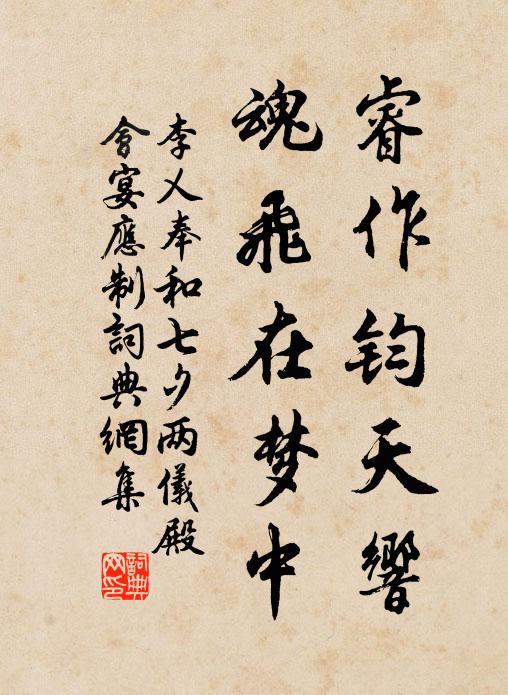 睿作钧天響
魂飛在梦中
李乂奉和七夕两儀殿
會宴應制詞典網集
詞典
网印